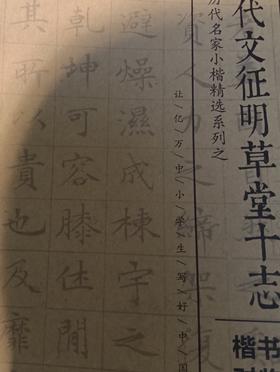 代文征明草堂十志
楷书
历代名家小楷精选系列之
让/亿/万/中/小/学/生/写/好/中/国
資人力之締架復
避燥濕成棟宇之
乾坤可容膝休閒
其所以貴也及靡